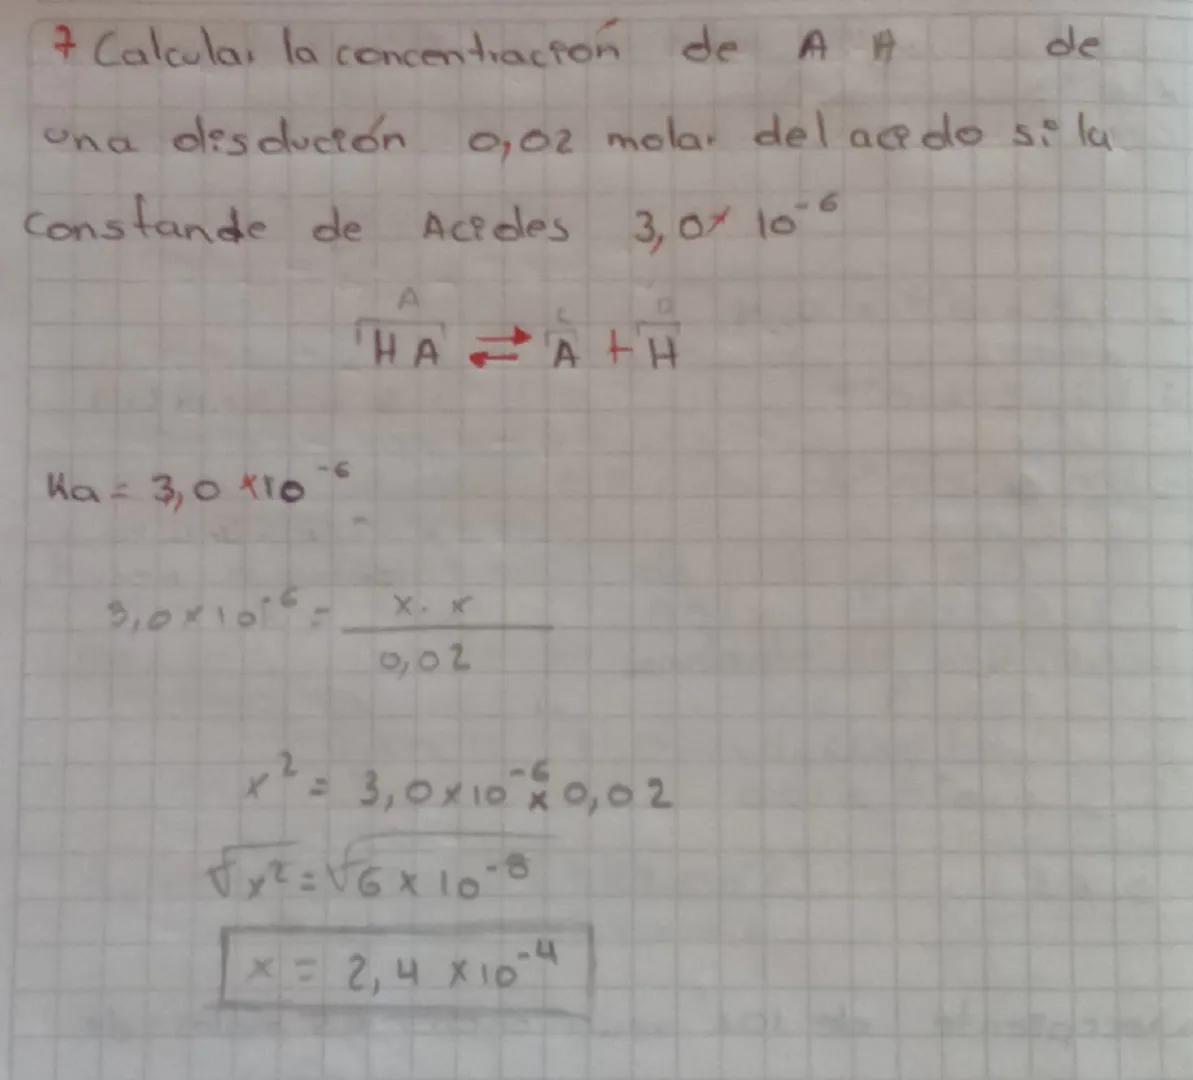 7 Calcular la concentración de A H de
una disdución 0,02 molar del acido si la
constande de Acides 3,0x 10⁻⁶
A C D
HA ⇌ A + H
Ka = 3,0 x10⁻⁶
3,0x10⁻⁶ = x. x / 0,02
x² = 3,0x10⁻⁶ x 0,02
√x² = √6 x 10⁻⁸
x = 2,4 x10⁻⁴